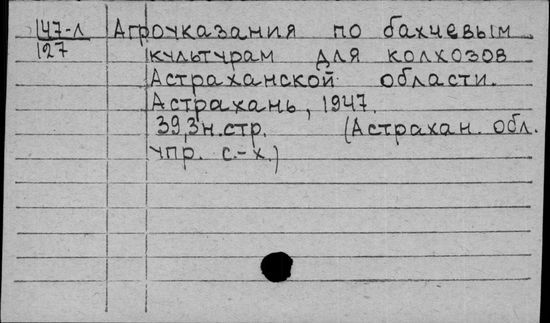 147-л Агроуказания по бахчевым
127 культурам для колхозов
Астраханской области.
Астрахань, 1947.
39,3н.стр. (Астрахан. обл.
упр. с.-х.)